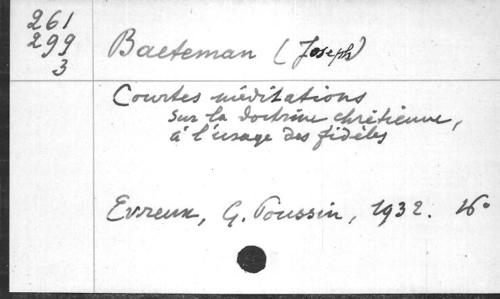 261
299
3
Baeteman (Joseph)
Courtes méditations
sur la doctrine chrétienne,
à l'usage des fidèles
Evreux, G. Poussin, 1932. 16°